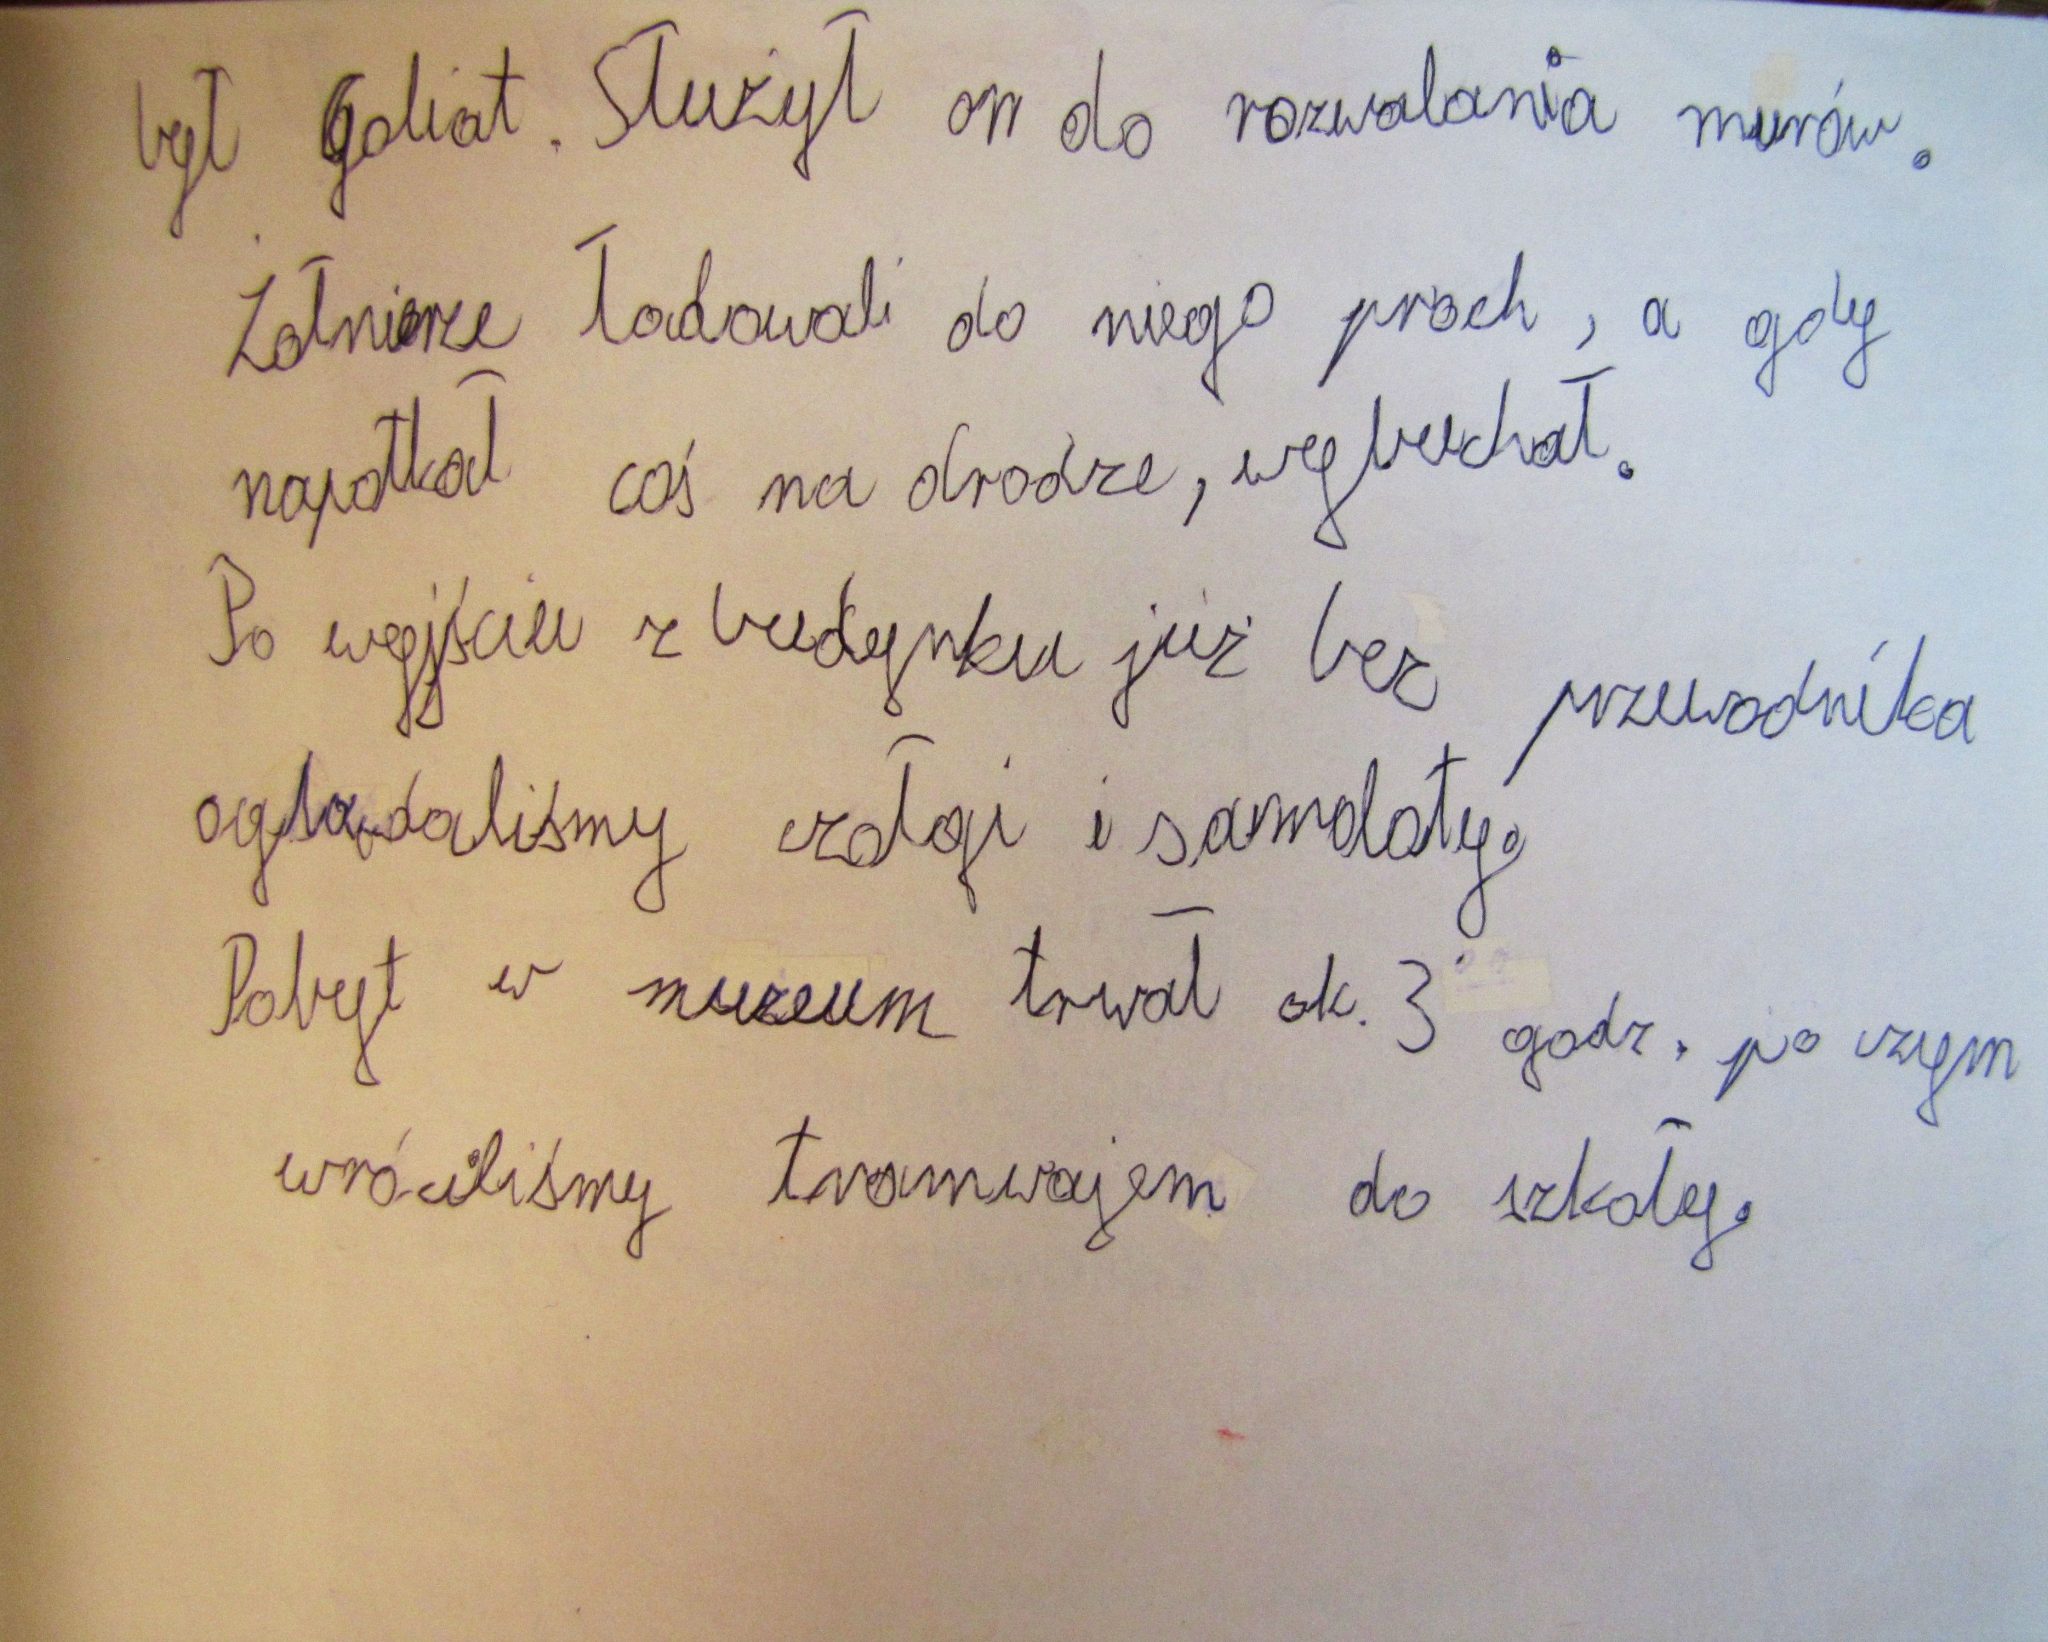 był Goliat. Służył on do rozwalania murów.
Żołnierze ładowali do niego proch, a gdy
napotkał coś na drodze, wybuchał.
Po wyjściu z budynku już bez przewodnika
oglądaliśmy czołgi i samoloty.
Pobyt w muzeum trwał ok. 3 godz. po czym
wróciliśmy tramwajem do szkoły.